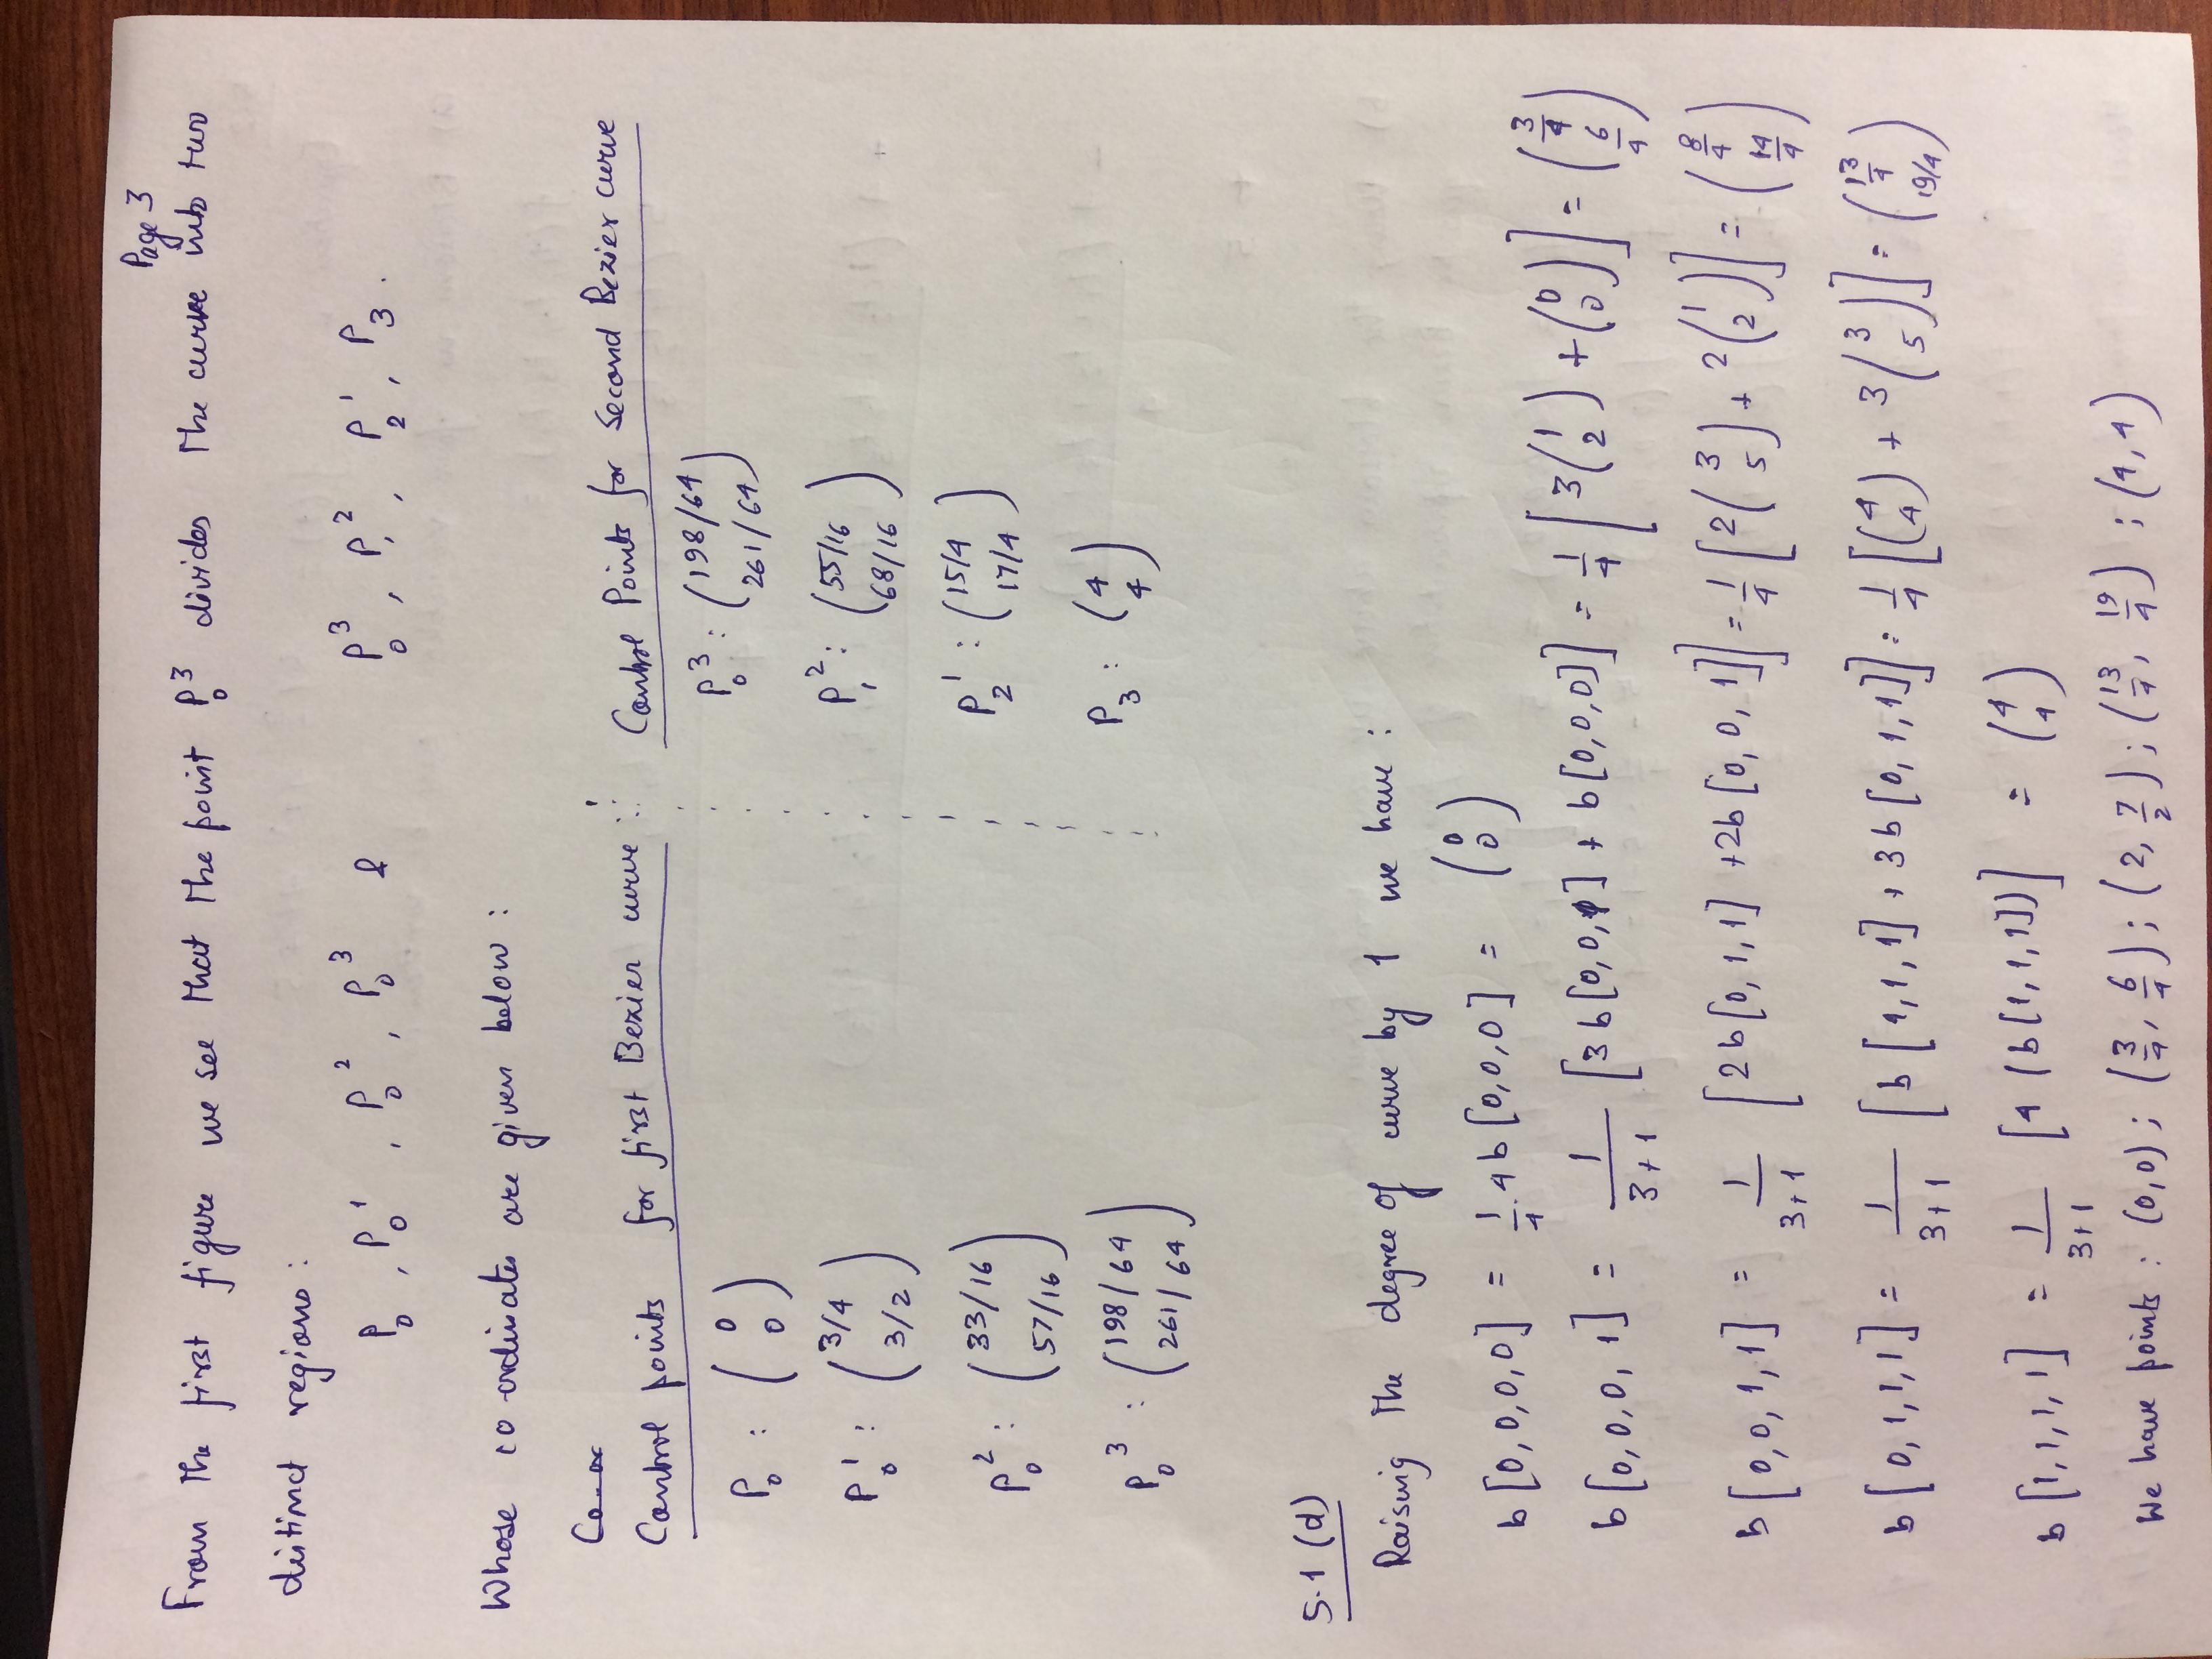 Page 3
From the first figure we see that the point P₀³ divides the curve into two
distinct regions:
P₀, P₀¹, P₀², P₀³ & P₀³, P₁², P₂¹, P₃.
Whose co-ordinates are given below:
Co-or
Control points for first Bezier curve: Control Points for Second Bezier curve
P₀ : (0 0) P₀³ : (198/64 261/64)
P₀¹ : (3/4 3/2) P₁² : (55/16 68/16)
P₀² : (33/16 57/16) P₂¹ : (15/4 17/4)
P₀³ : (198/64 261/64) P₃ : (4 4)
5.1 (d)
Raising the degree of curve by 1 we have:
b[0,0,0,0] = 1/4 . 4b[0,0,0] = (0 0)
b[0,0,0,1] = 1/(3+1) [3b[0,0,1] + b[0,0,0]] = 1/4 [3(1 2) + (0 0)] = (3/4 6/4)
b[0,0,1,1] = 1/(3+1) [2b[0,1,1] + 2b[0,0,1]] = 1/4 [2(3 5) + 2(1 2)] = (8/4 14/4)
b[0,1,1,1] = 1/(3+1) [b[1,1,1] + 3b[0,1,1]] = 1/4 [(4 4) + 3(3 5)] = (13/4 19/4)
b[1,1,1,1] = 1/(3+1) [4(b[1,1,1])] = (4 4)
We have points : (0,0); (3/4, 6/4); (2, 7/2); (13/4, 19/4); (4,4)